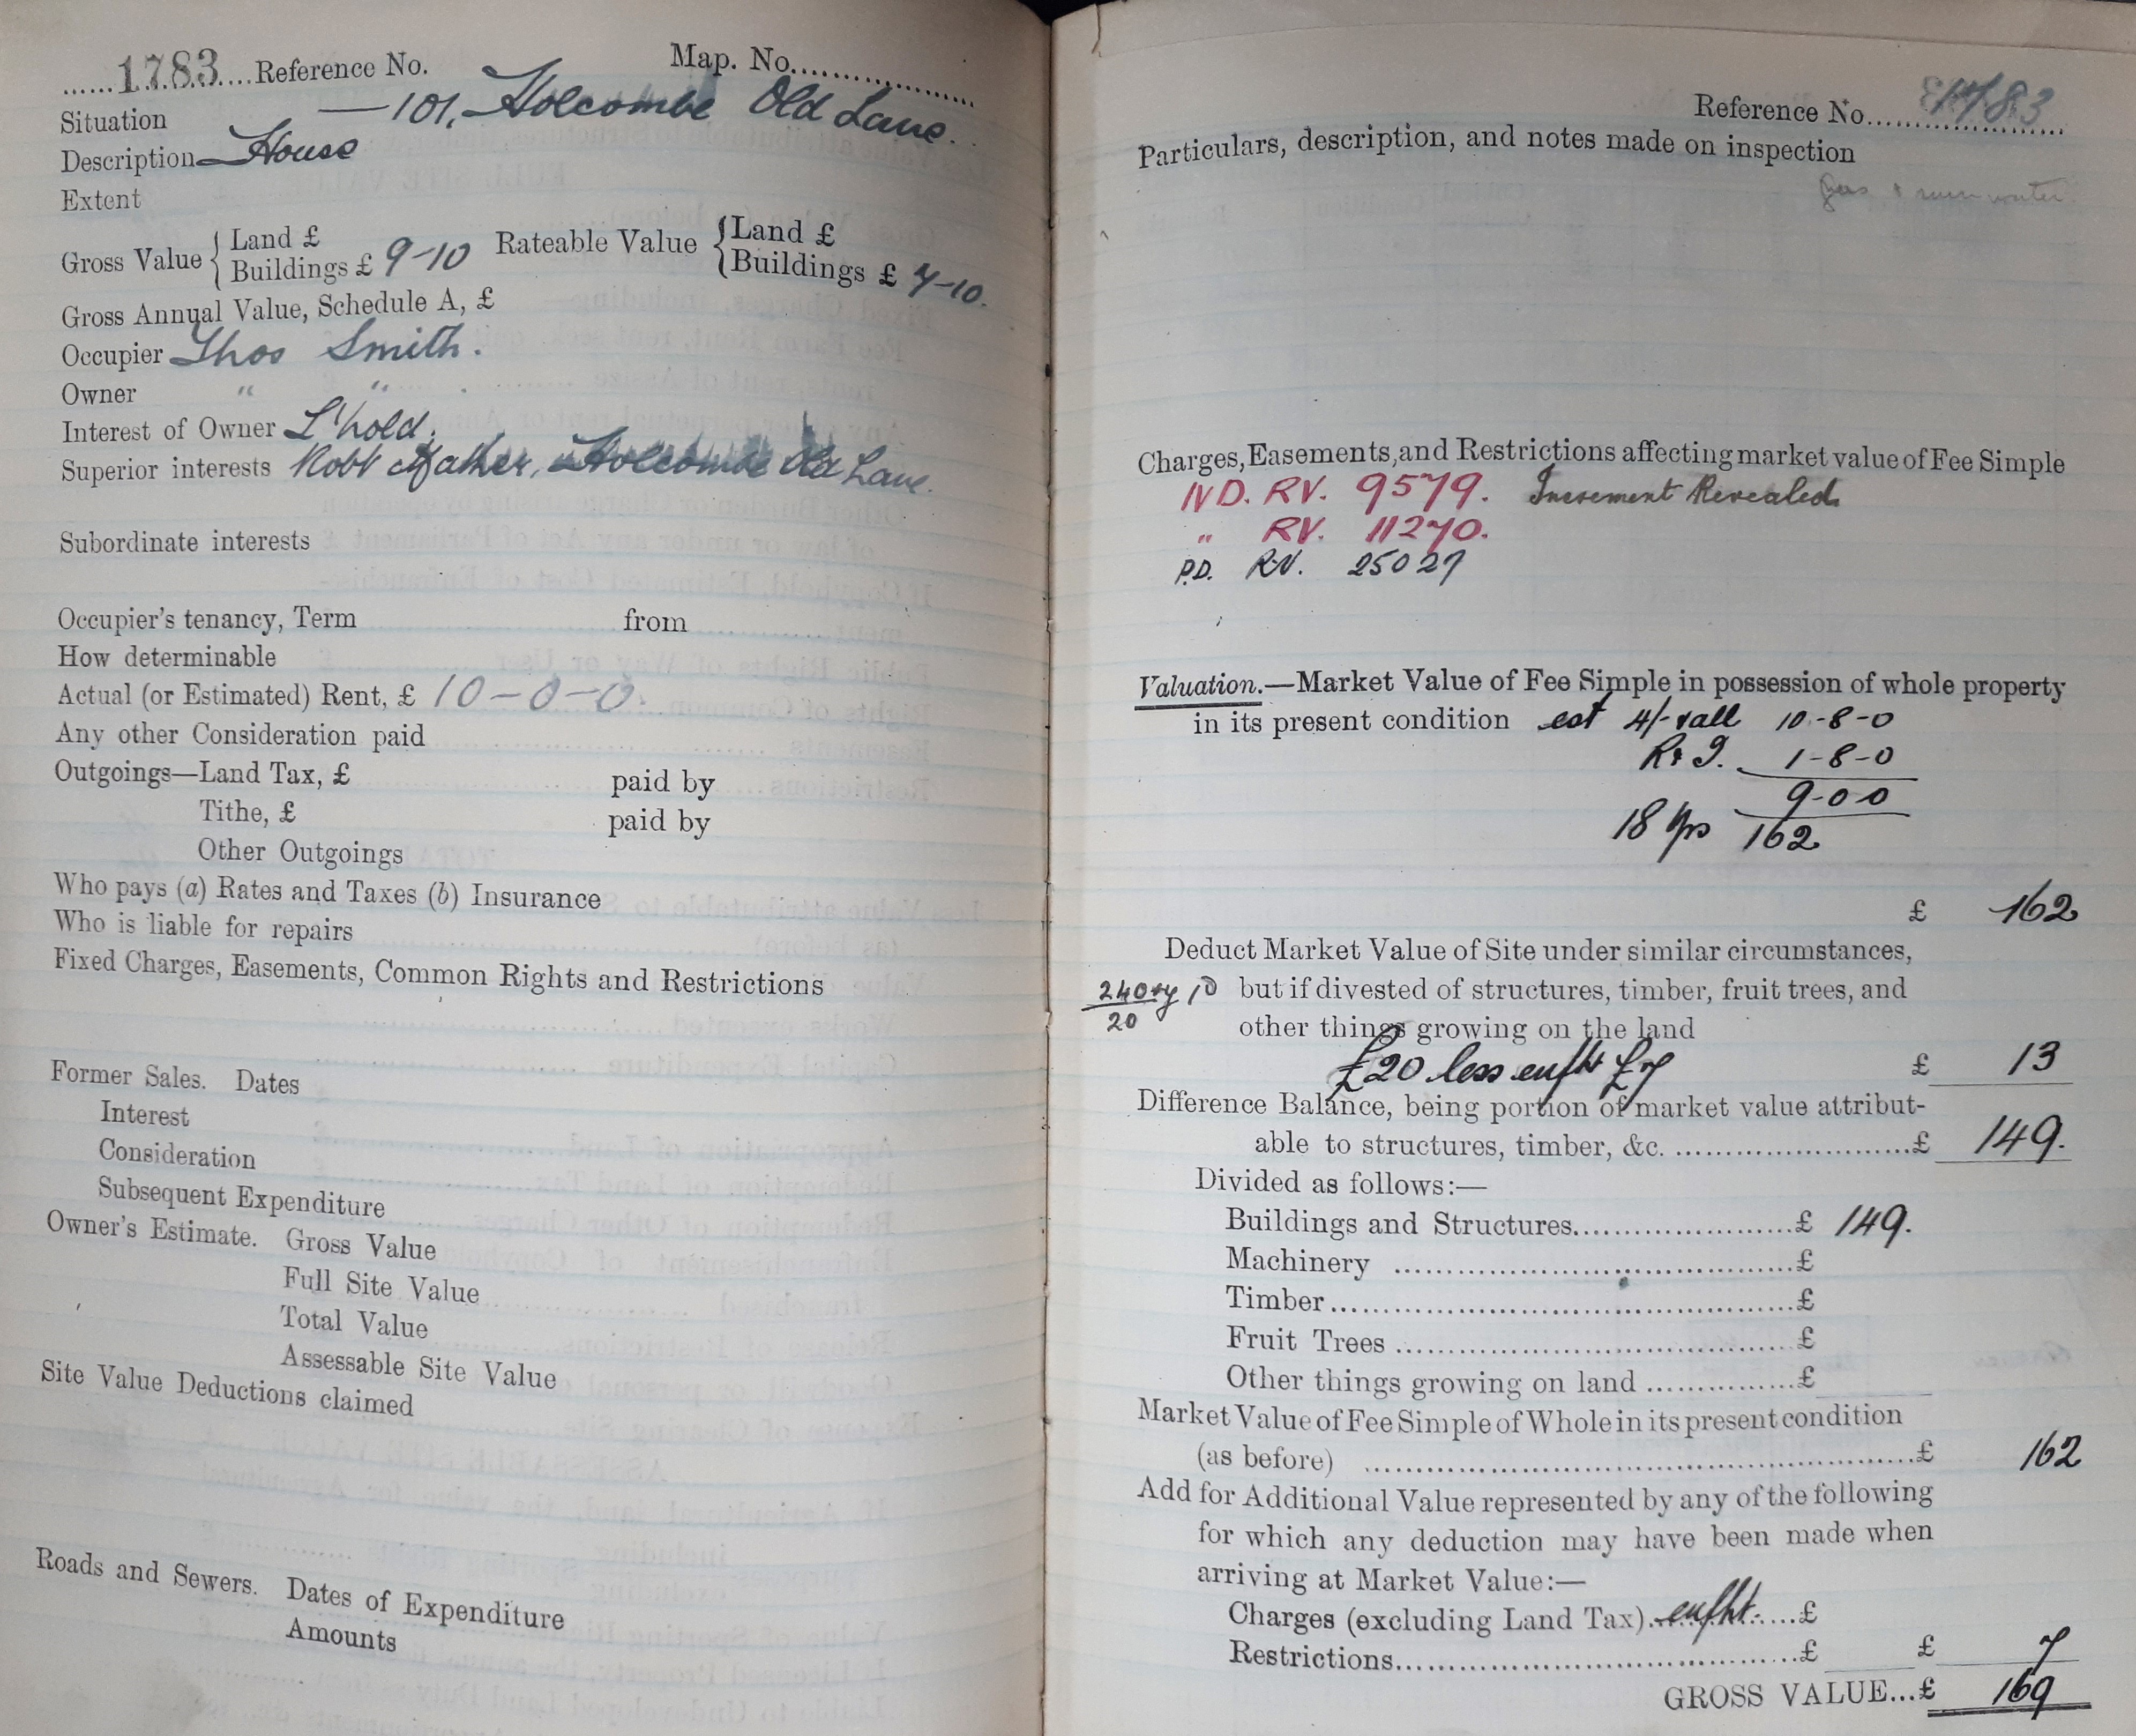 ......1783....Reference No. Map. No..................
Situation —101, Holcombe Old Lane.
Description House
Extent
Gross Value { Land £ Rateable Value { Land £
Buildings £ 9-10 Buildings £ 7-10.
Gross Annual Value, Schedule A, £
Occupier Thos Smith.
Owner " "
Interest of Owner L'hold.
Superior interests Robt Mather, Holcombe Old Lane.
Subordinate interests
Occupier's tenancy, Term from
How determinable
Actual (or Estimated) Rent, £ 10-0-0.
Any other Consideration paid
Outgoings—Land Tax, £ paid by
Tithe, £ paid by
Other Outgoings
Who pays (a) Rates and Taxes (b) Insurance
Who is liable for repairs
Fixed Charges, Easements, Common Rights and Restrictions
Former Sales. Dates
Interest
Consideration
Subsequent Expenditure
Owner's Estimate. Gross Value
Full Site Value
Total Value
Assessable Site Value
Site Value Deductions claimed
Roads and Sewers. Dates of Expenditure
Amounts
Reference No.....1783
Particulars, description, and notes made on inspection
Gas & rain water.
Charges, Easements, and Restrictions affecting market value of Fee Simple
IVD. RV. 9579. Increment Revealed
" RV. 11270.
P.D. RV. 25027
Valuation.—Market Value of Fee Simple in possession of whole property
in its present condition est 4/- & all 10-8-0
R & I. 1-8-0
9-0-0
18 yrs 162
£ 162
Deduct Market Value of Site under similar circumstances,
240 sy but if divested of structures, timber, fruit trees, and
20 other things growing on the land
£20 less enfht £7 £ 13
Difference Balance, being portion of market value attribut-
able to structures, timber, &c. ..........................£ 149.
Divided as follows:—
Buildings and Structures........................£ 149.
Machinery ............................................£
Timber....................................................£
Fruit Trees .............................................£
Other things growing on land .................£
Market Value of Fee Simple of Whole in its present condition
(as before) ...............................................................£ 162
Add for Additional Value represented by any of the following
for which any deduction may have been made when
arriving at Market Value:—
Charges (excluding Land Tax)..enfht......£
Restrictions..............................................£ £ 7
GROSS VALUE...£ 169